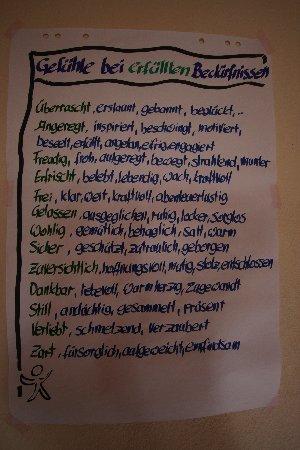 Gefühle bei erfüllten Bedürfnissen
Überrascht, erstaunt, gebannt, beglückt, ..
Angeregt, inspiriert, beschwingt, motiviert,
Beseelt, erfüllt, angetan, eifrig, engagiert
Freudig, froh, aufgeregt, bewegt, strahlend, munter
Erfrischt, belebt, lebendig, wach, kraftvoll
Frei, klar, weit, kraftvoll, abenteuerlustig
Gelassen, ausgeglichen, ruhig, locker, sorglos
Wohlig, gemütlich, behaglich, satt, warm
Sicher, geschützt, zutraulich, geborgen
Zuversichtlich, hoffnungsvoll, mutig, stolz, entschlossen
Dankbar, liebevoll, warmherzig, zugewandt
Still, andächtig, gesammelt, präsent
Verliebt, schmelzend, verzaubert
Zart, fürsorglich, aufgeweicht, empfindsam